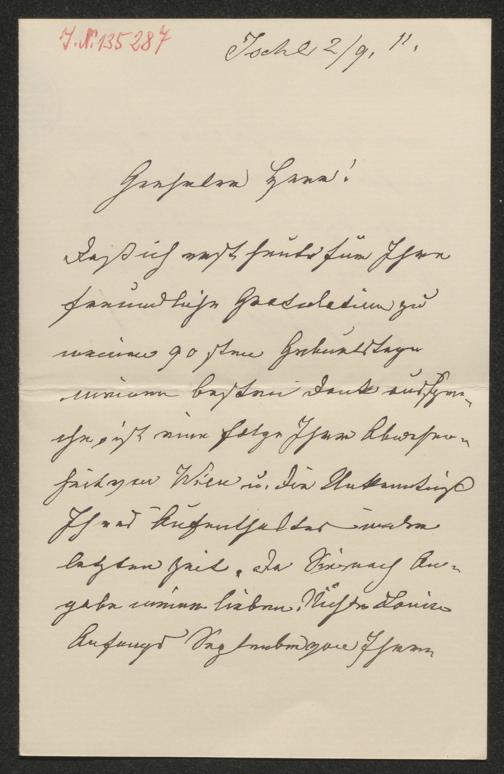 J.N. 135287
Ischl 2/9. 11.
Geehrter Herr!
Daß ich erst heute für Ihre
freundliche Gratulation zu
meinem 90sten Geburtstage
meinen besten Dank ausspre-
che, ist eine Folge Ihrer Abwesen-
heit von Wien u. die Unkenntniß
Ihres Aufenthaltes in der
letzten Zeit. Da Sie nach An-
gabe meiner lieben Nichte Louise
Anfangs September von Ihrem